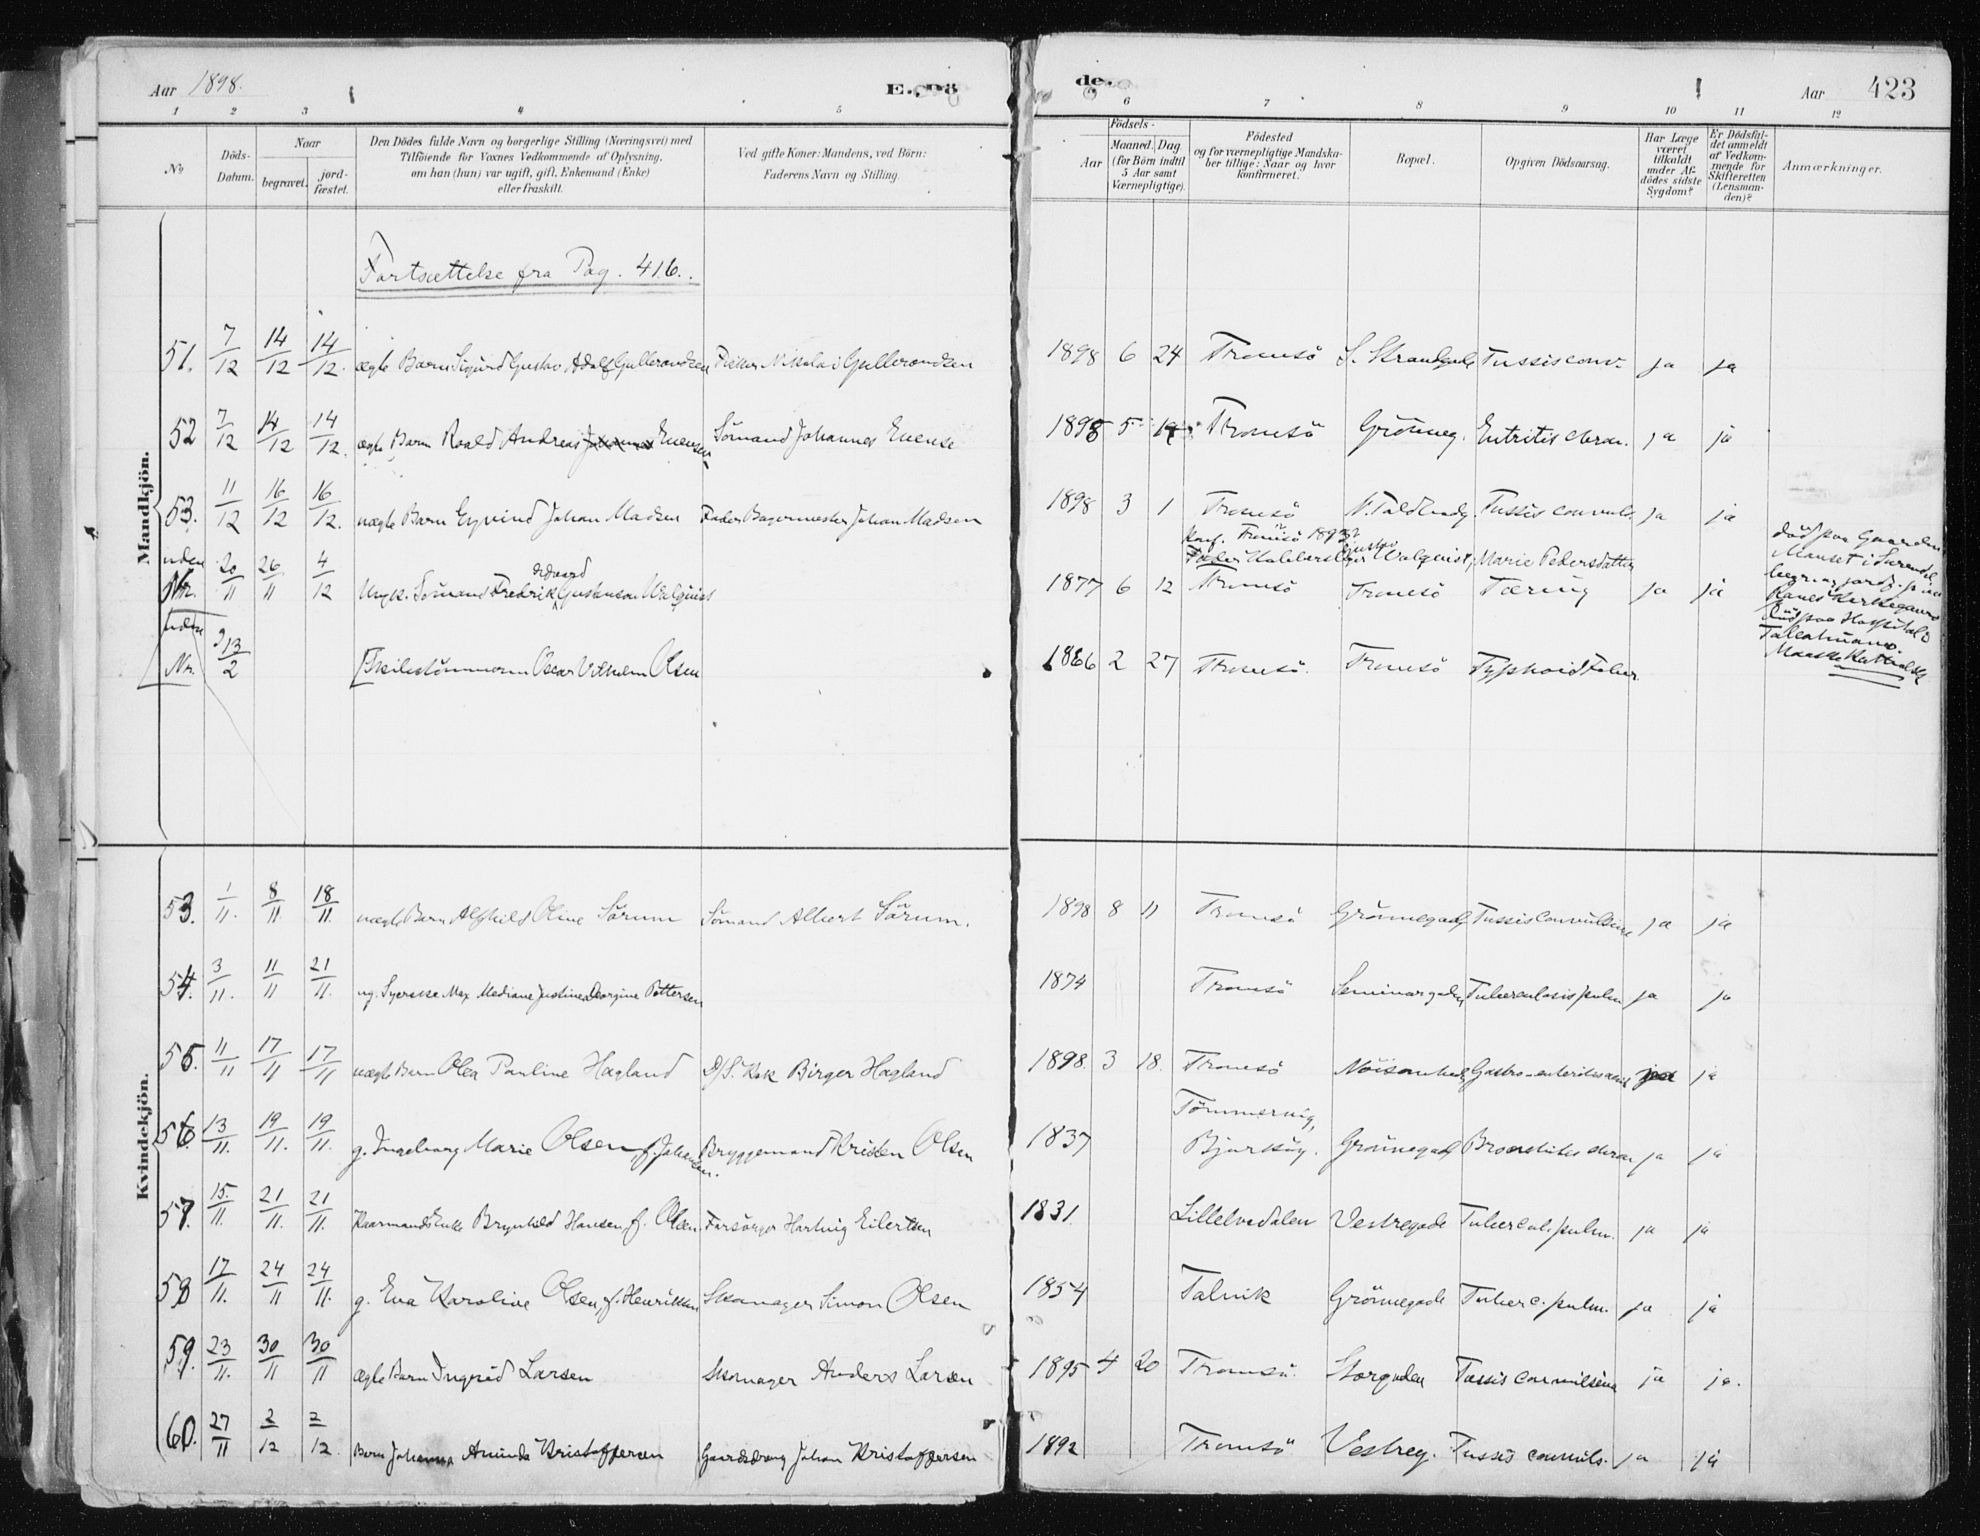 Aar 1898.
E. Dö
de.
Aar
423
1 2 3 4 5
6 7 8 9 10 11 12
No
Döds-Datum.
Naar
begravet.
jordfæstet.
Den Dödes fulde Navn og borgerlige Stilling (Næringsvei) med
Tilföiende for Voxnes Vedkommende af Oplysning,
om han (hun) var ugift, gift, Enkemand (Enke)
eller fraskilt.
Ved gifte Koner: Mandens, ved Börn:
Faderens Navn og Stilling.
Födsels-
Aar
Maaned. Dag
(for Börn indtil
5 Aar samt
Værnepligtige).
Födested
og for værnepligtige Mandskaber tillige: Naar og hvor
konfirmeret.
Bopæl.
Opgiven Dödsaarsag.
Har Læge
været
tilkaldt
under Afdödes sidste
Sygdom?
Er Dödsfaldet anmeldt
af Vedkommende for
Skifteretten
(Lensmanden)?
Anmærkninger.
Mandkjön.
Fortsættelse fra Pag. 416.
51. 7/12 14/12 14/12. ægte Barn Sigurd Gustav Adolf Gullerandsen Fisker Nikolai Gullerandsen 1898 6 24 Tromsö S. Strandgade Tussis conv. ja ja
52 7/12 14/12 14/12. ægte Barn Roald Andreas Evensen Sömand Johannes Evense 1898 5 Tromsö Grönneg. Entritis chron. ja ja
53. 11/12 16/12 16/12. uægte Barn Eyvind Johan Madsen Fader Bagermester Johan Madsen 1898 3 1 Tromsö N. Toldbodg. Tussis convuls. ja ja
Konf. Tromsö
Fader Gustav Walquist, Marie Pedersdatter
uden Nr. 20/11 26/11 4/12 Ungk. Sömand Fredrik Edvard Gustavson Walquist 1877 6 12 Tromsö Tromsö Tæring ja ja död paa Gaarden
uden Nr. 13/2 Oscar Vilhelm Olsen 1866 2 27 Tromsö. Tromsö Typhoid Feber. Död paa Hospital i
Talcahuano.
Maaske Katholsk
Kvindekjön.
53. 1/11. 8/11. 18/11. uægte Barn Alfhild Oline Sörum Sömand Albert Sörum. 1898 8 11 Tromsö Grönnegade Tussis Convulsiva ja ja
54. 3/11. 11/11 21/11. ug. Syerske Max Mediane Justine Georgine Pettersen 1874 Tromsö Seminargaden Tuberculosis pulm ja ja
55. 11/11 17/11 17/11 uægte Barn Olea Pauline Hagland D/S. Kok Birger Hagland 1898. 3 18. Tromsö Gastro-enteritis ja ja
56. 13/11. 19/11. 19/11. g. Ingeborg Marie Olsen, f. Johansen. Bryggemand Kristen Olsen 1837 Tömmervig, Bjarköy. Grönnegade Bronchitis chron ja ja
57. 15/11. 21/11. 21/11. Enke Brynhild Hansen f. Olsen Forsörger Hartvig Eilertsen 1831. Vestregade Tubercul. pulm. ja ja
58 17/11. 24/11 24/11. g. Eva Karoline Olsen, f. Henriksen Skomager Simon Olsen 1854 Talvik Grönnegade Tuberc. pulm. ja ja
59. 23/11. 30/11 30/11 ægte Barn Ingrid Larsen Skomager Anders Larsen 1895 4 20 Tromsö. Storgaden Tussis convulsiva ja ja.
60. 27/11 2/12 2/12. Barn Johanna Aminda Kristoffersen Gaardsdreng Johan Kristoffersen 1892 Tromsö Vestreg. Tussis convuls. ja ja